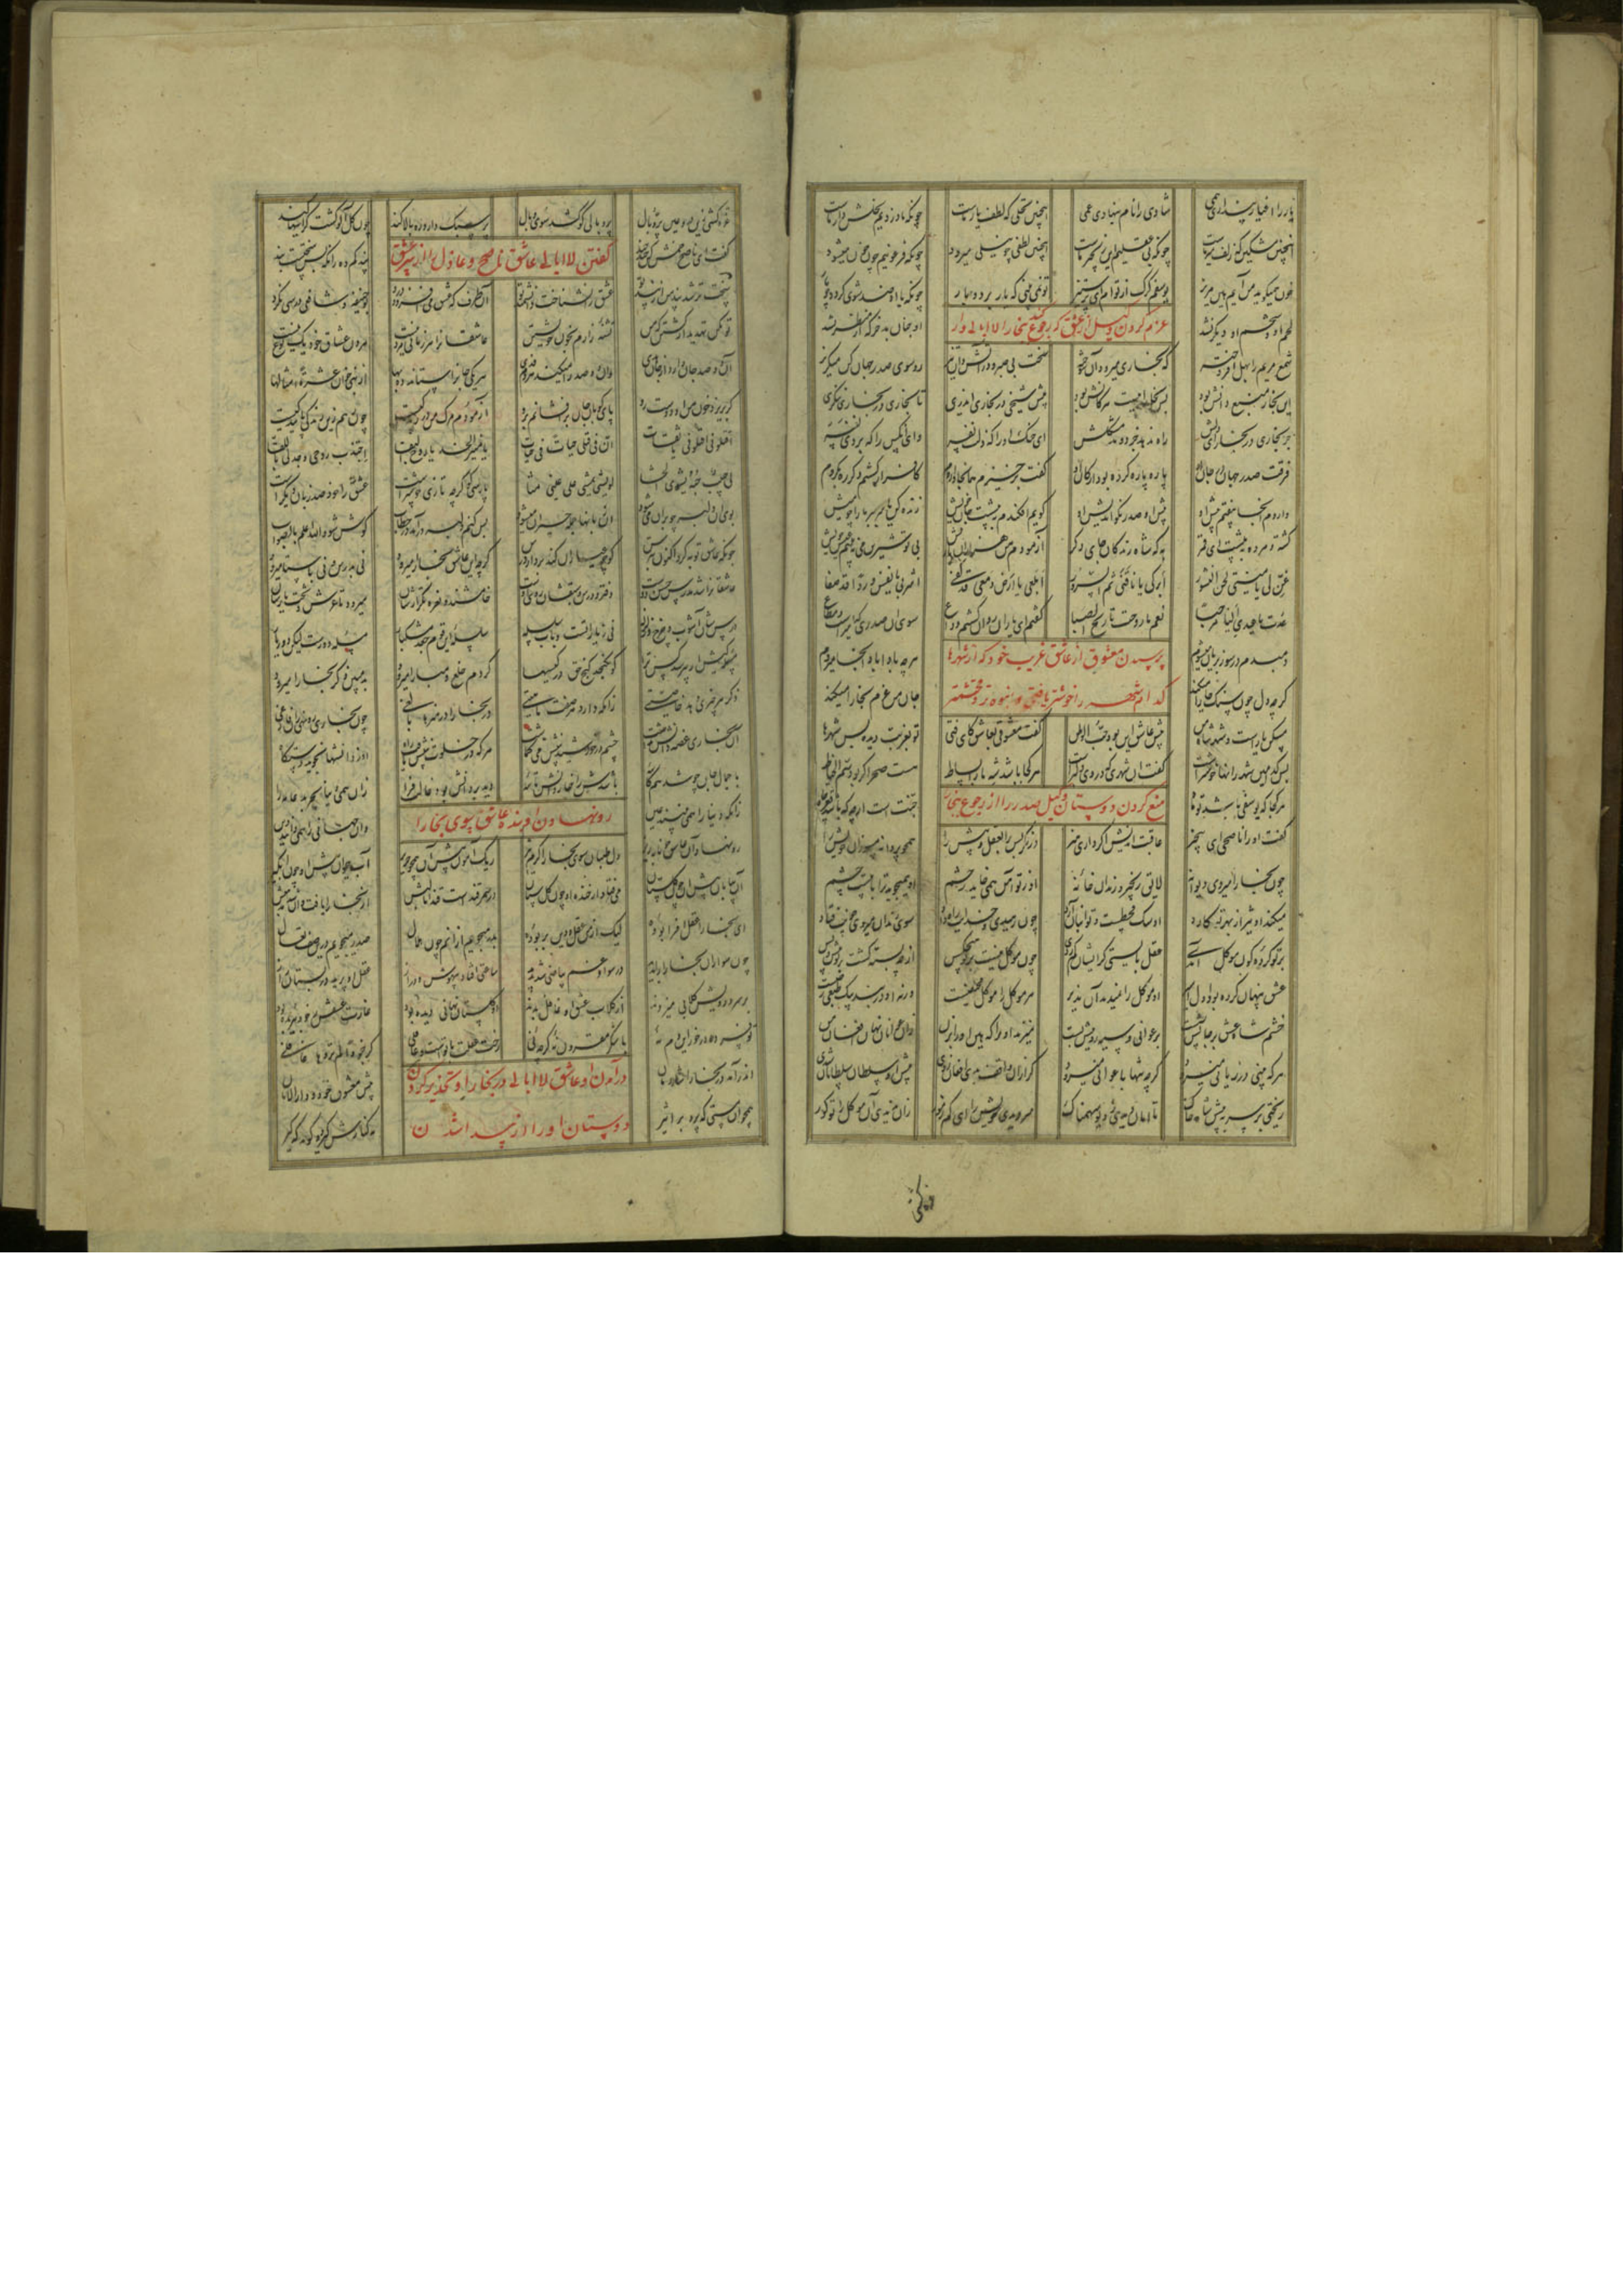 یار را اغیار پنداری همی شادی را نام بنهادی غمی اینچنین نخلی که لطف یار ماست چونکه ما دزدیم نخلش دار ماست
اینچنین مشکین که زلف میر ماست چونکه بی عقلیم این زنجیر ماست اینچنین لطفی چو نیلی میرود چونکه فرعونیم چون خون میشود
خون همیگوید من آبم هین مریز یوسفم گرگ از توام ای پرستیز تو نمی بینی که یار بردبار چونکه با او ضد شدی گردد چو مار
لحم او و شحم او دیگر نشد او چنان بد جز که از منظر نشد
عزم کردن وکیل از عشق که رجوع کند بخارا لاابالی وار
شمع مریم را بهل افروخته که بخارا میرود آن سوخته سخت بی صبر و در آتشدان تیز رو سوی صدر جهان کن میگریز
این بخارا منبع دانش بود پس بخاراییست هر کانش بود پیش شیخی در بخارا اندری تا بخواری در بخارا ننگری
جز بخواری در بخارای دلش راه ندهد جزر و مد مشکلش ای خنک آنرا که ذلت نفسه وای آنکس را که یردی رفسه
فرقت صدر جهان در جان او پاره پاره کرده بود ارکان او گفت برخیزم همانجا واروم کافر ار گشتم دگر ره بگروم
واروم آنجا بیفتم پیش او پیش آن صدر نکواندیش او گویم افکندم بپیشت جان خویش زنده کن یا سر ببر ما را چو میش
کشته و مرده بپیشت ای قمر به که شاه زندگان جای دگر آزمودم من هزاران بار بیش بی تو شیرین می نبینم عیش خویش
غن لی یا منیتی لحن النشور ابرکی یا ناقتی تم السرور ابلعی یا ارض دمعی قد کفی اشربی یا نفس وردا قد صفا
عدت یا عیدی الینا مرحبا نعم ما روحت یا ریح الصبا گفتم ای یاران روان گشتم وداع سوی آن صدری که میر است و مطاع
دمبدم در سوز بریان میشوم هرچه بادا باد آنجا میروم
پرسیدن معشوق از عاشق غریب خود که از شهرها
گرچه دل چون سنگ خارا میکند جان من عزم بخارا میکند
کدام شهر را خوشتر یافتی و انبوه تر و محتشمتر
مسکن یار است و شهر شاه من پیش عاشق این بود حب الوطن گفت معشوقی بعاشق کای فتی تو بغربت دیده بس شهرها
پس کدامین شهر زانها خوشترست گفت آن شهری که در وی دلبرست هر کجا باشد شه ما را بساط هست صحرا گر بود سم الخیاط
هر کجا که یوسفی باشد چو ماه جنت است ارچه که باشد قعر چاه
منع کردن دوستان وکیل صدر را از رجوع بخارا
گفت او را ناصحی ای بیخبر عاقبت اندیش اگر داری هنر درنگر پس را بعقل و پیش را همچو پروانه مسوزان خویش را
چون بخارا میروی دیوانه لایق زنجیر و زندان خانه او ز تو آهن همی خاید ز خشم او همیجوید ترا با بیست چشم
میکند او تیز از بهر تو کارد او سگ قحطست و تو انبان آرد چون رهیدی و خدایت راه داد سوی زندان میروی چونت فتاد
بر تو گر ده گون موکل آمدی عقل بایستی کز ایشان کم زدی چون موکل نیست بر تو هیچکس از چه بسته گشت بر تو پیش و پس
عشق پنهان کرده بود او را اسیر آن موکل را نمیدید آن نذیر هر موکل را موکل مختفیست ورنه او در بند سگ طبعی ز چیست
خشم شاه عشق بر جانش نشست بر عوانی و سیه روییش بست میزند او را که هین او را بزن زان عوانان نهان افغان من
هر که بینی در زیانی میرود گرچه تنها با عوانی میرود گر ازان واقف بدی افغان زدی پیش آن سلطان سلطانان شدی
ریختی بر سر بپیش شاه خاک تا امان دیدی ز دیو سهمناک میر دیدی خویش را ای کم ز مور زان ندیدی آن موکل را تو کور
غره گشتی زین دروغین پر و بال پر و بالی کو کشد سوی وبال پر سبک دارد ره بالا کند چون گل آلو گشت گرانیها کند
گفتن لاابالی عاشق ناصح و عاذل را از سر عشق
گفت ای ناصح خمش کن چند چند پند کم ده زانکه بس سختست بند
سخت تر شد بند من از پند تو عشق را نشناخت دانشمند تو آن طرف که عشق می افزود درد بوحنیفه و شافعی درسی نکرد
تو مکن تهدید از کشتن که من تشنه زارم بخون خویشتن عاشقان را هر زمانی مردنیست مردن عشاق خود یک نوع نیست
آن دو صد جان دارد از جان هدی وان دو صد را میکند هر دم فدی هر یکی جان را ستاند ده بها از نبی خوان عشرة امثالها
گر بریزد خون من آن دوست رو پای کوبان جان برافشانم برو آزمودم مرگ من در زندگیست چون رهم زین زندگی پایندگیست
اقتلونی اقتلونی یا ثقات ان فی قتلی حیاتا فی حیات یا منیر الخد یا روح البقا اجتذب روحی و جد لی باللقا
لی حبیب حبه یشوی الحشا لو یشا یمشی علی عینی مشا پارسی گو گرچه تازی خوشترست عشق را خود صد زبان دیگر است
بوی آن دلبر چو پران میشود آن زبانها جمله حیران میشود بس کنم دلبر درآمد در خطاب گوش شو والله اعلم بالصواب
چونکه عاشق توبه کرد اکنون بترس کو چو عیاران کند بر دار درس گرچه این عاشق بخارا میرود نی بدرس و نی باستا میرود
عاشقان را شد مدرس حسن دوست دفتر و درس و سبقشان روی اوست خامشند و نعره تکرارشان میرود تا عرش و تخت یارشان
درسشان آشوب و چرخ و زلزله نی زیاداتست و باب سلسله سلسله این قوم جعد مشکبار مسئله دورست لیکن دور یار
مسئله کیس ار بپرسد کس ترا گو نگنجد گنج حق در کیسها گر دم خلع و مبارا میرود بد مبین ذکر بخارا میرود
ذکر هر چیزی دهد خاصیتی زانکه دارد هر صفت ماهیتی در بخارا در هنرها بالغی چون بخواری رو نهی زان فارغی
آن بخاری غصه دانش نداشت چشم بر خورشید بینش میگماشت هر که در خلوت ببینش یافت راه او ز دانشها نجوید دستگاه
با جمال جان چو شد همکاسه باشدش ز اخبار و دانش تاسه دید بر دانش بود غالب فرا زان همی دنیا بچربد عامه را
زانکه دنیا را همی بینند عین وان جهانی را همی دانند دین
رو نهادن آن بنده عاشق سوی بخارا
رو نهاد آن عاشق خونابه ریز دل طپان سوی بخارا گرم و تیز ریگ آمون پیش او همچون حریر آب جیحون پیش او چون آبگیر
آن بیابان پیش او چون گلستان می فتاد از خنده او چون گلستان در سمرقندست قند اما لبش از بخارا یافت و آن شد مذهبش
ای بخارا عقل افزا بوده لیک از من عقل و دین بربوده بدر میجویم از آنم چون هلال صدر میجویم درین صف نعال
چون سواد آن بخارا را بدید در سواد غم بیاضی شد پدید ساعتی افتاد بیهوش و دراز عقل او پرید در بستان راز
بر سر و رویش گلابی میزدند از گلاب عشق او غافل بدند او گلستانی نهانی دیده بود غارت عشقش ز خود ببریده بود
تو فسرده درخور این دم نه با شکر مقرون نه گرچه نی رخت عقلت با تو است و عاقلی
درآمدن آن عاشق لاابالی در بخارا و تحذیر کردن
اندر آمد در بخارا شادمان پیش معشوق خود و دارالامان
دوستان او را از پیدا شدن
همچو آن مستی که پرد بر اثیر مه کنارش گیرد و گوید که گیر